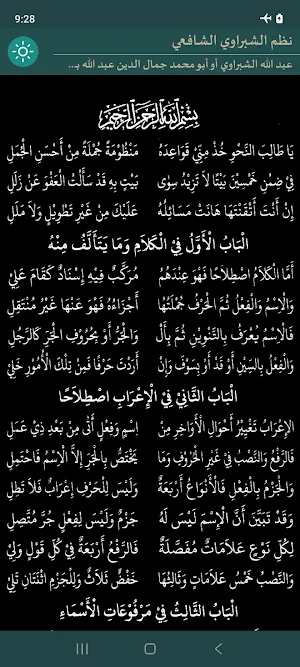 9:28
نظم الشبراوي الشافعي
عبد الله الشبراوي أو أبو محمد جمال الدين عبد الله بـ...
بِسْمِ اللهِ الرَّحْمٰنِ الرَّحِيمِ
يَا طَالِبَ النَّحْوِ خُذْ مِنِّي قَوَاعِدَهُ مَنْظُومَةً جُمْلَةً مِنْ أَحْسَنِ الْجُمَلِ
فِي ضِمْنِ خَمْسِينَ بَيْتًا لَا تَزِيدُ سِوَى بَيْتٍ بِهِ قَدْ سَأَلْتُ الْعَفْوَ عَنْ زَلَلِ
إِنْ أَنْتَ أَتْقَنْتَهَا هَانَتْ مَسَائِلُهُ عَلَيْكَ مِنْ غَيْرِ تَطْوِيلٍ وَلَا مَلَلِ
الْبَابُ الْأَوَّلُ فِي الْكَلَامِ وَمَا يَتَأَلَّفُ مِنْهُ
أَمَّا الْكَلَامُ اصْطِلَاحًا فَهْوَ عِنْدَهُمُ مُرَكَّبٌ فِيهِ إِسْنَادٌ كَقَامَ عَلِيْ
وَالْإِسْمُ وَالْفِعْلُ ثُمَّ الْحَرْفُ جُمْلَتُهَا أَجْزَاؤُهُ فَهْوَ عَنْهَا غَيْرُ مُنْتَقِلِ
فَالْإِسْمُ يُعْرَفُ بِالتَّنْوِينِ ثُمَّ بِأَلْ وَالْجَرِّ أَوْ بِحُرُوفِ الْجَرِّ كَالرَّجُلِ
وَالْفِعْلُ بِالسِّينِ أَوْ قَدْ أَوْ بِسَوْفَ وَإِنْ أَرَدْتَ حَرْفًا فَمِنْ تِلْكَ الْأُمُورِ خَلِيْ
الْبَابُ الثَّانِي فِي الْإِعْرَابِ اصْطِلَاحًا
الْإِعْرَابُ تَغْيِيرُ أَحْوَالِ الْأَوَاخِرِ مِنْ اِسْمٍ وَفِعْلٍ أَتَى مِنْ بَعْدِ ذِي عَمَلِ
فَالرَّفْعُ وَالنَّصْبُ فِي غَيْرِ الْحُرُوفِ وَمَا يَخْتَصُّ بِالْجَرِّ إِلَّا الْإِسْمُ فَاحْتَمِلِ
وَالْجَزْمُ بِالْفِعْلِ فَالْأَنْوَاعُ أَرْبَعَةٌ وَلَيْسَ لِلْحَرْفِ إِعْرَابٌ فَلَا تَطِلِ
وَقَدْ تَبَيَّنَ أَنَّ الْإِسْمَ لَيْسَ لَهُ جَزْمٌ وَلَيْسَ لِفِعْلٍ جَرُّ مُتَّصِلِ
لِكُلِّ نَوْعٍ عَلَامَاتٌ مُفَصَّلَةٌ فَالرَّفْعُ أَرْبَعَةٌ فِي كُلِّ قَوْلِ وَلِيْ
وَالنَّصْبُ خَمْسُ عَلَامَاتٍ وَثَالِثُهَا خَفْضٌ ثَلَاثٌ وَلِلْجَزْمِ اثْنَتَانِ تَلِيْ
الْبَابُ الثَّالِثُ فِي مَرْفُوعَاتِ الْأَسْمَاءِ